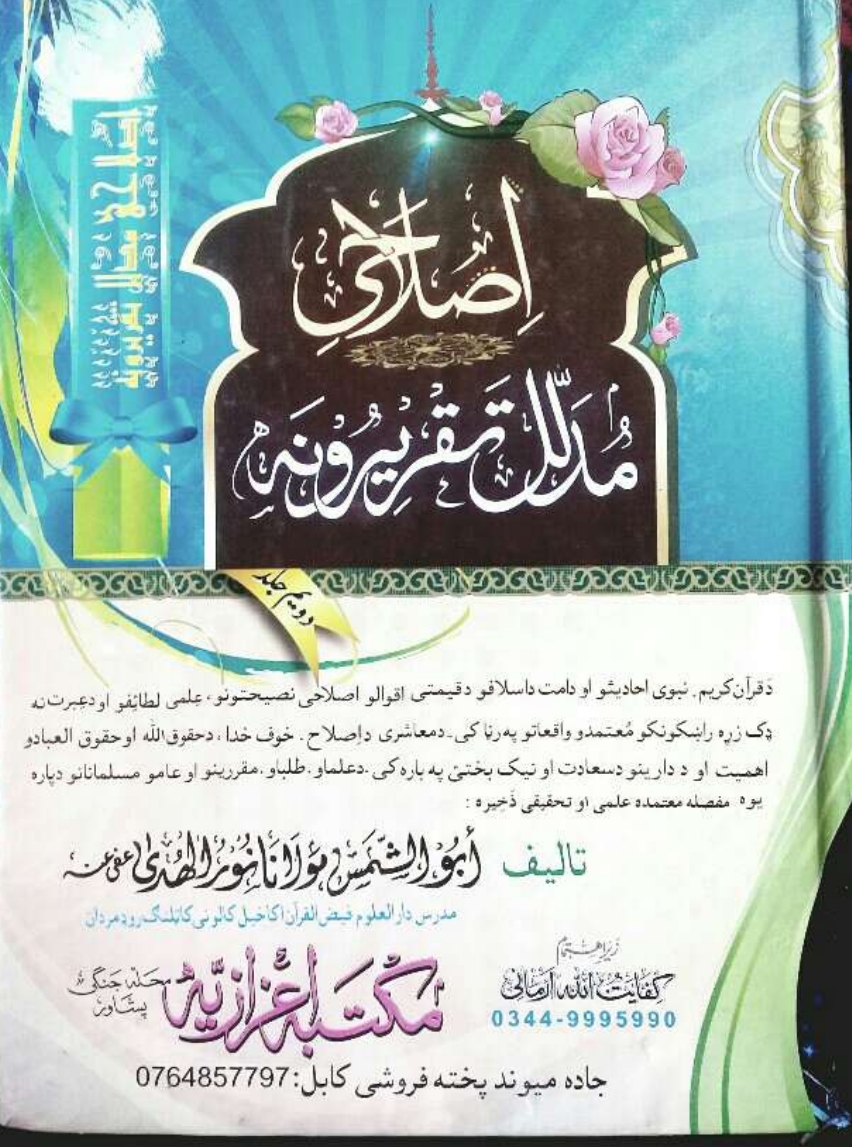 اصلاحی
مدلل تقریرونه
دویم جلد
دَقرآن کریم. نبوی احادیثو او دامت داسلافو دقیمتی اقوالو اصلاحی نصیحتونو، علمی لطائفو او دعبرت نه
ډک زړه راښکونکو مُعتمدو واقعاتو په رڼا کی۔ دمعاشری داِصلاح. خوف خدا، دحقوق الله او حقوق العبادو
اهمیت او د دارینو دسعادت او نیک بختئ په باره کی. دعلماو. طلباو. مقررینو او عامو مسلمانانو دپاره
یوه مفصله معتمده علمی او تحقیقی ذَخِیره :
تالیف أبو الشمس مولانا نور الهدی عفی عنه
مدرس دارالعلوم فیض القرآن اکاخیل کالونی کاټلنګ روډ مردان
زیر اهتمام
کفایت الله آرمانی
0344-9995990
مکتبه اعزازیه محله جنګی پشاور
جاده میوند پخته فروشی کابل: 0764857797